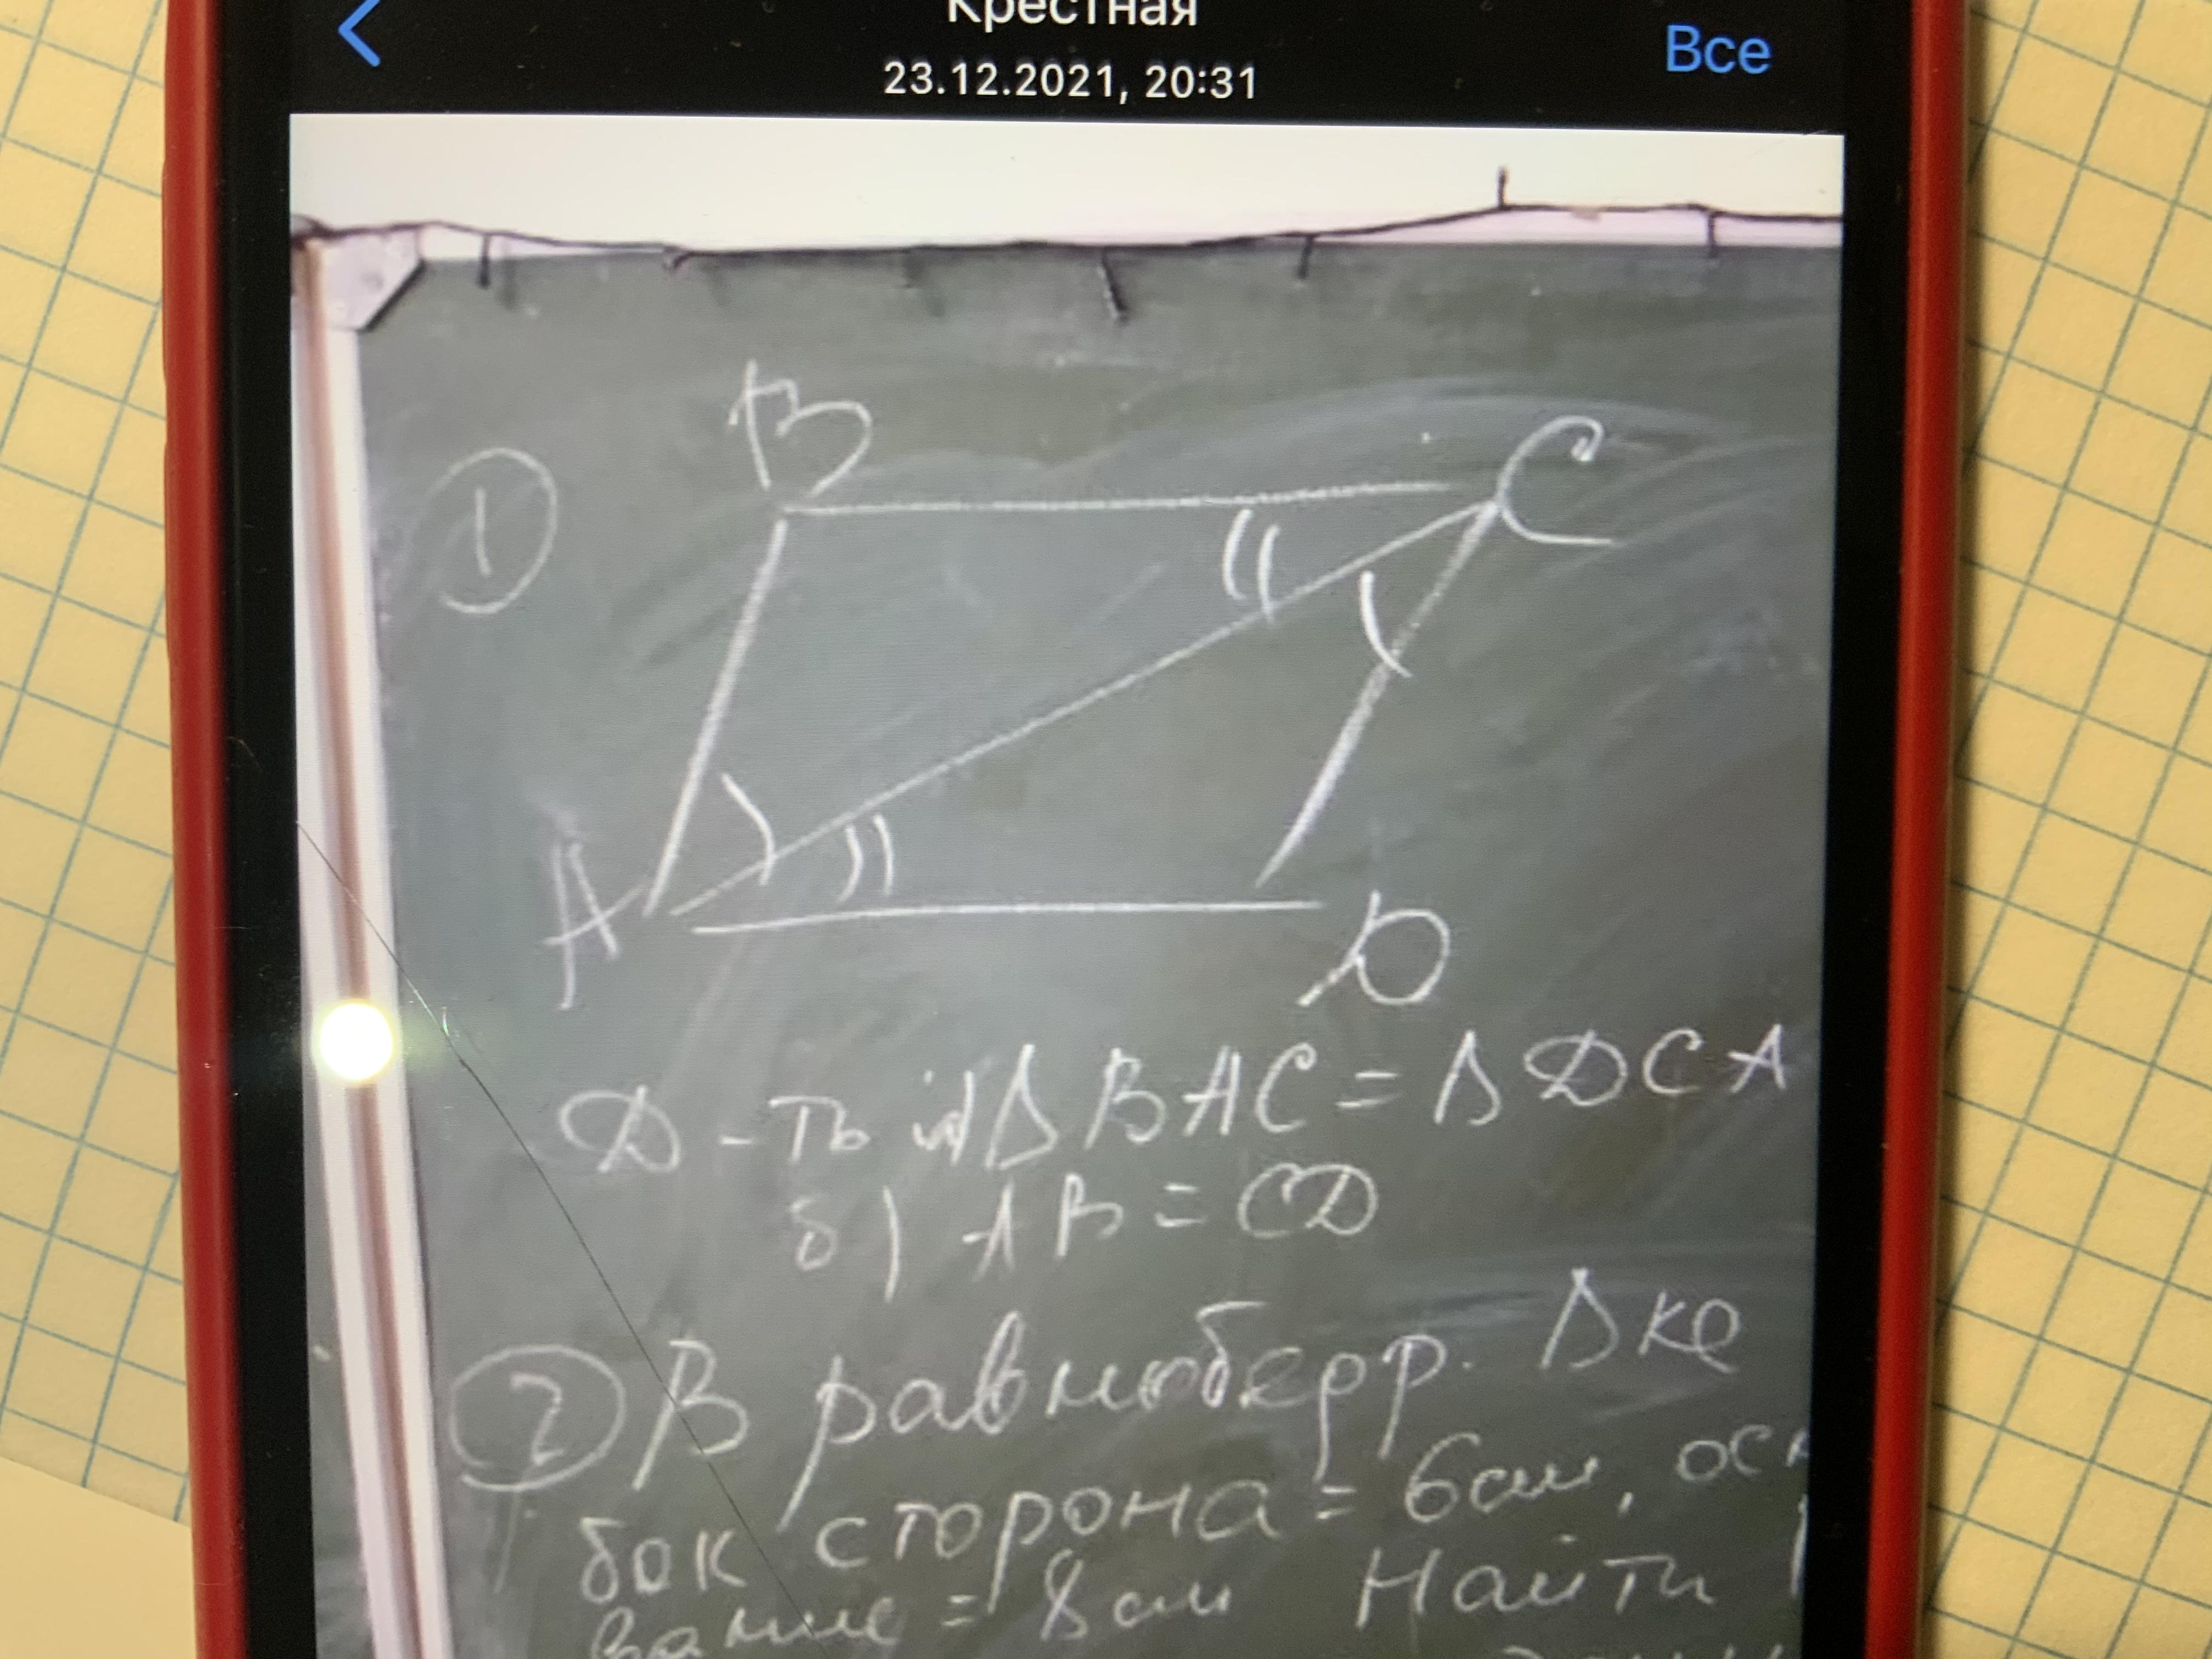 Крестная
23.12.2021, 20:31
Все
1
B
C
A
D
Д-ть а) Δ BAC = Δ DCA
б) AB = CD
2 В равнобедр. Δ ке
бок сторона = 6 см, осн
вание = 8 см Найти